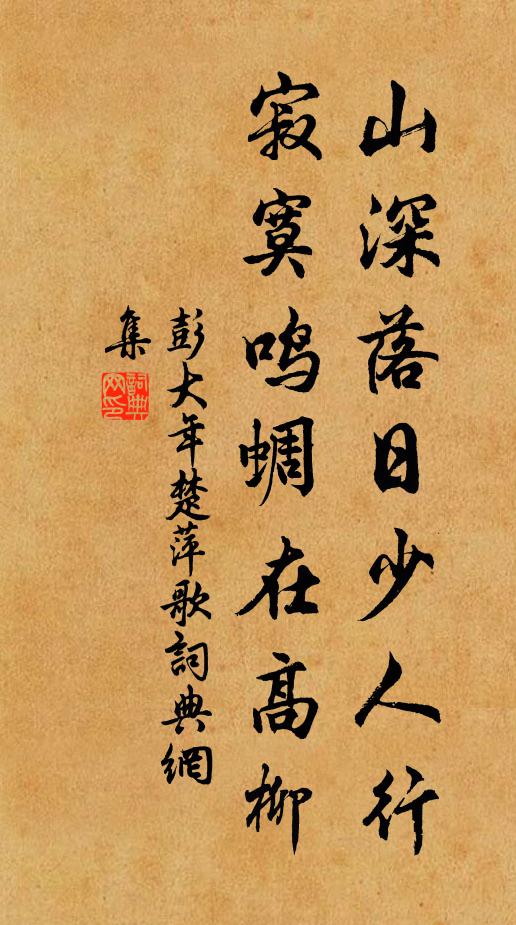 山深落日少人行
寂寞鳴蜩在高柳
彭大年楚萍歌詞典網
集
詞典
网印